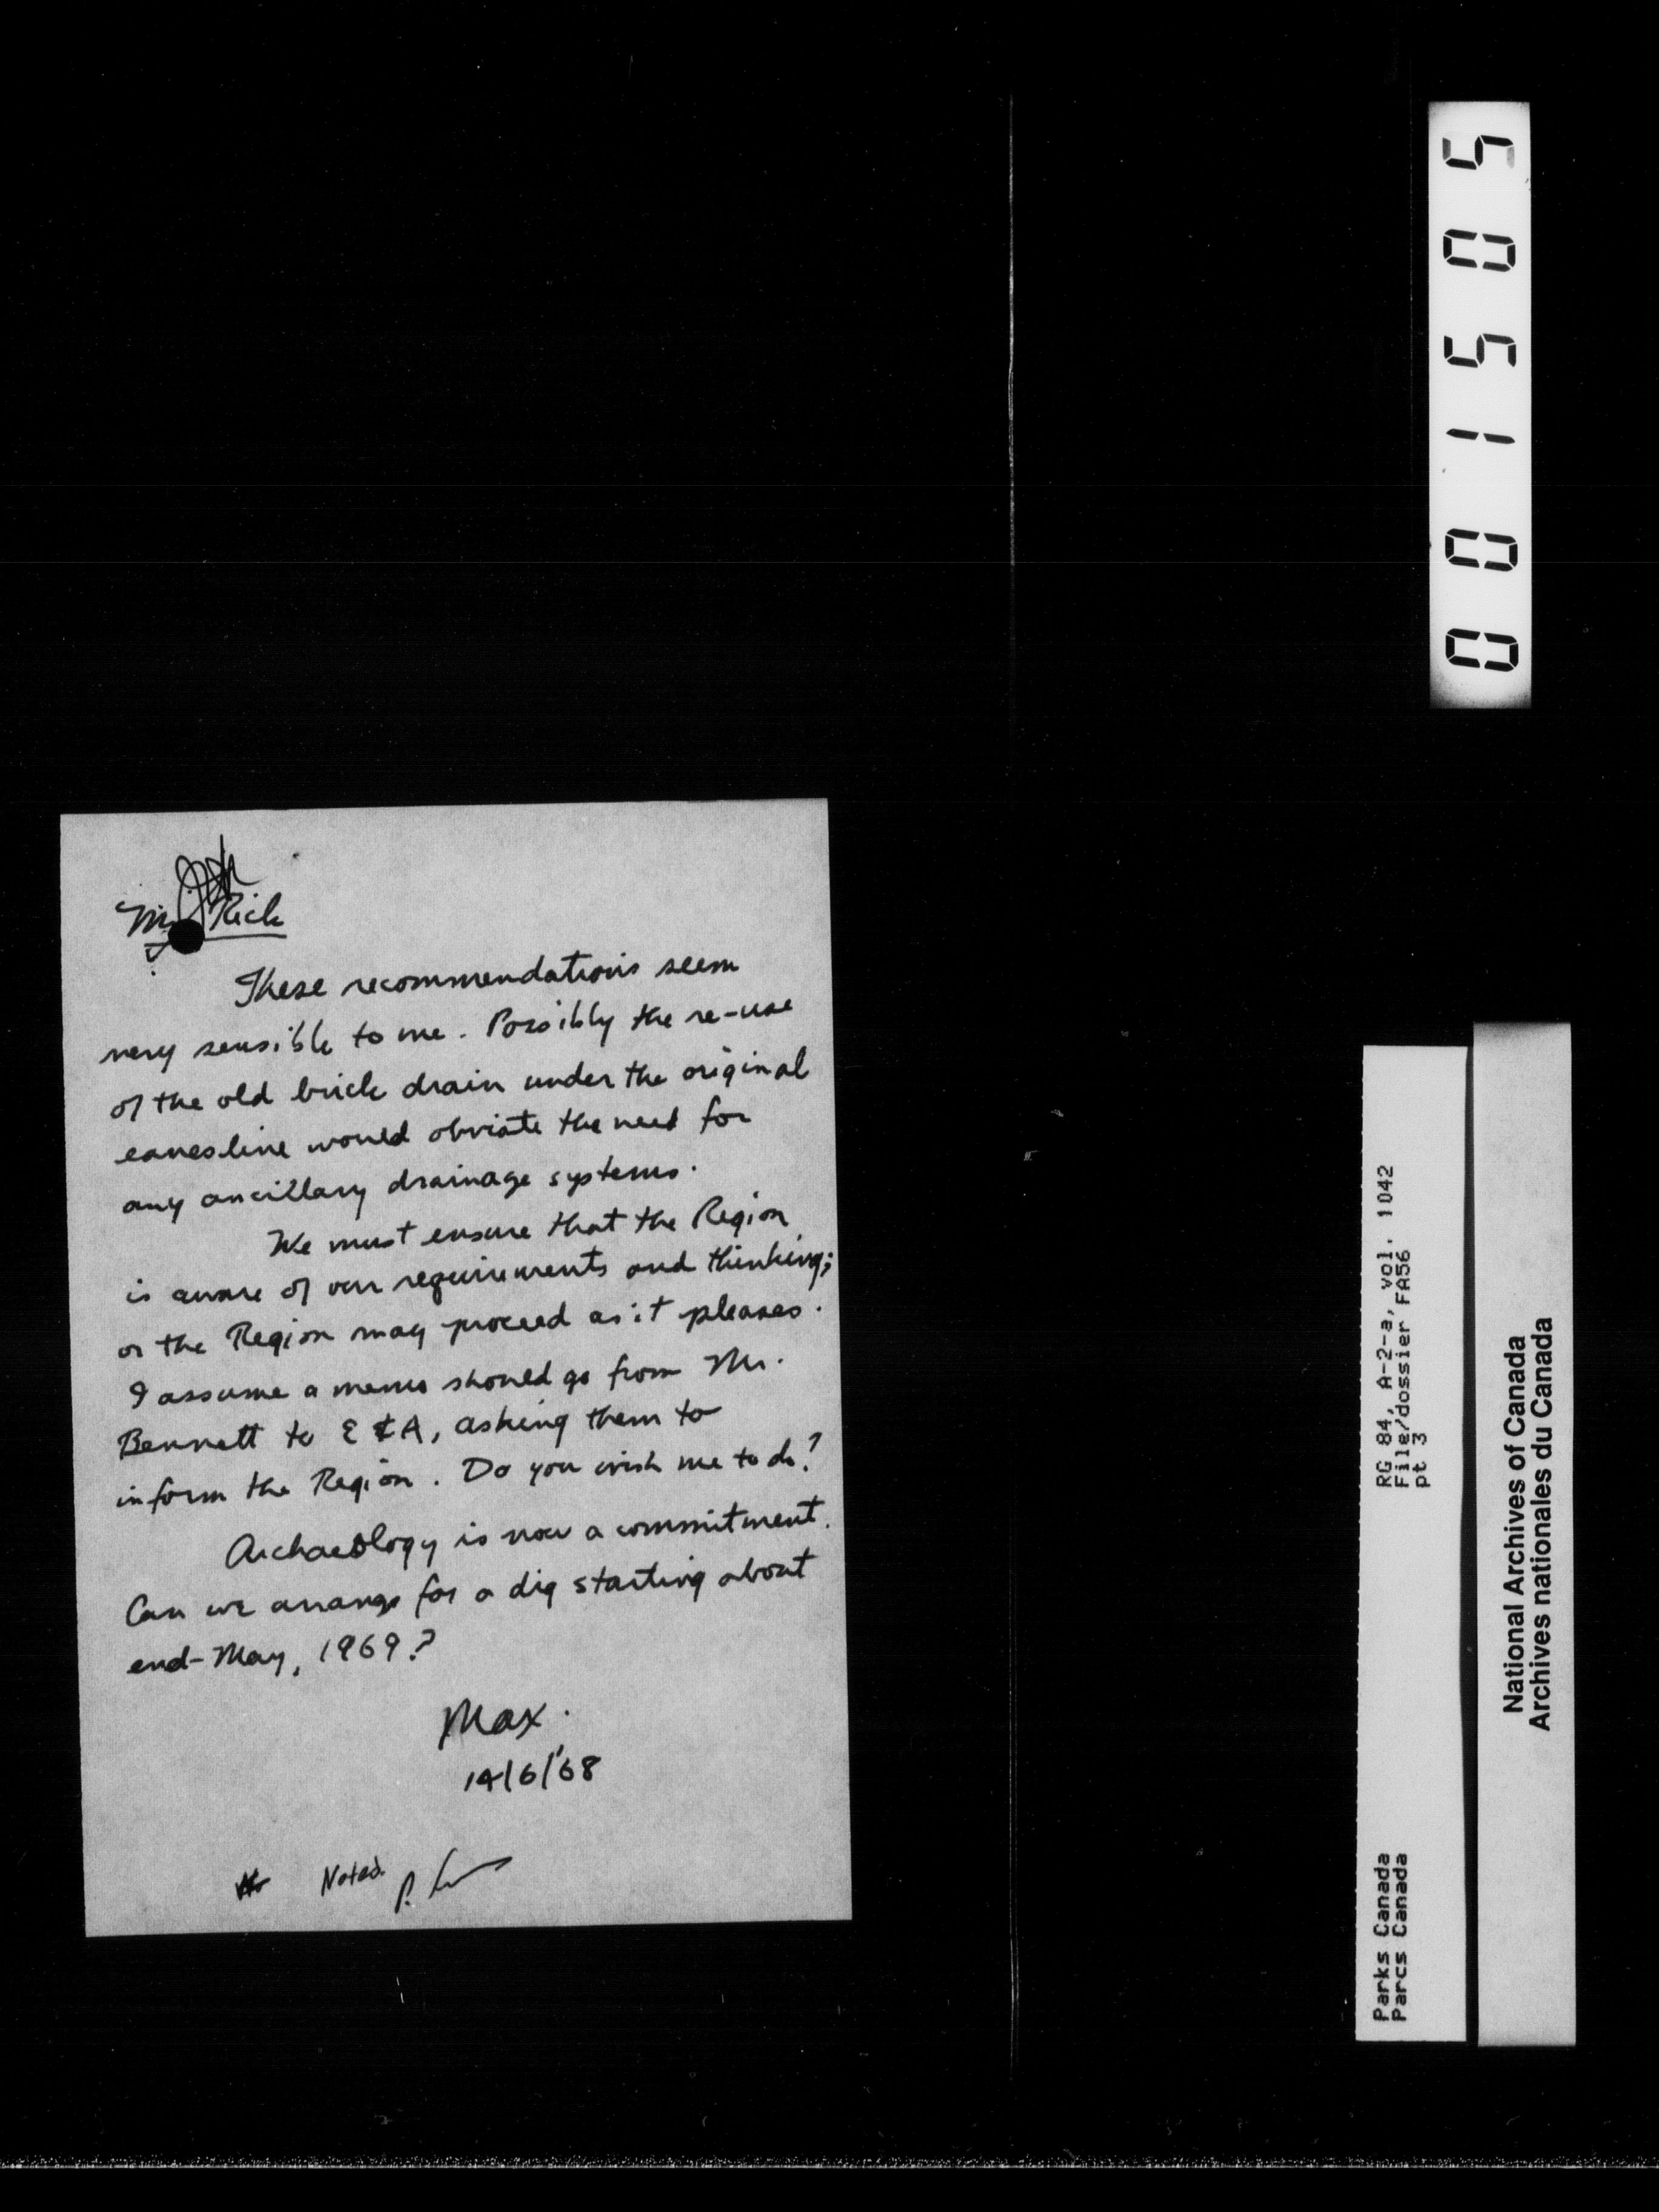 Mr. Rick
These recommendations seem
very sensible to me. Possibly the re-use
of the old brick drain under the original
eavesline would obviate the need for
any ancillary drainage systems.
We must ensure that the Region
is aware of our requirements and thinking;
or the Region may proceed as it pleases.
I assume a memo should go from Mr.
Bennett to E & A, asking them to
inform the Region. Do you wish me to do?
Archaeology is now a commitment.
Can we arrange for a dig starting about
end-May, 1969?
Max.
14/6/'68
Noted.
001505
RG 84, A-2-a, vol. 1042
File/dossier FA56
pt 3
Parks Canada
Parcs Canada
National Archives of Canada
Archives nationales du Canada